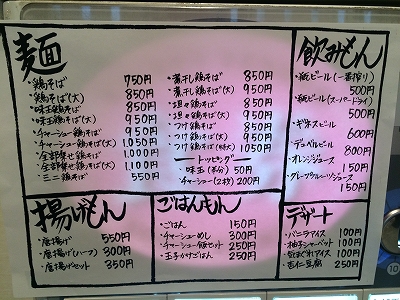 麺
・鶏そば 750円
・鶏そば(大) 850円
・味玉鶏そば 850円
・味玉鶏そば(大) 950円
・チャーシュー鶏そば 950円
・チャーシュー鶏そば(大) 1,050円
・全部乗せ鶏そば 1,000円
・全部乗せ鶏そば(大) 1,100円
・ミニ鶏そば 550円
・煮干し鶏そば 850円
・煮干し鶏そば(大) 950円
・坦々鶏そば 850円
・坦々鶏そば(大) 950円
・つけ鶏そば 850円
・つけ鶏そば(大) 950円
・つけ鶏そば(特大) 1050円
トッピング
・味玉(半分) 50円
・チャーシュー(2枚) 200円
飲みもん
・瓶ビール(一番搾り)
500円
・瓶ビール(スーパードライ)
500円
・ギネスビール
600円
・デュベルビール
800円
・オレンジジュース
150円
・グレープフルーツジュース
150円
揚げもん
・唐揚げ 550円
・唐揚げ(ハーフ) 300円
・唐揚げセット 350円
ごはんもん
・ごはん 150円
・チャーシューめし 300円
・チャーシュー飯セット 250円
・玉子かけごはん 250円
デザート
・バニラアイス 100円
・柚子シャーベット 100円
・気まぐれアイス 100円
・杏仁豆腐 250円
10